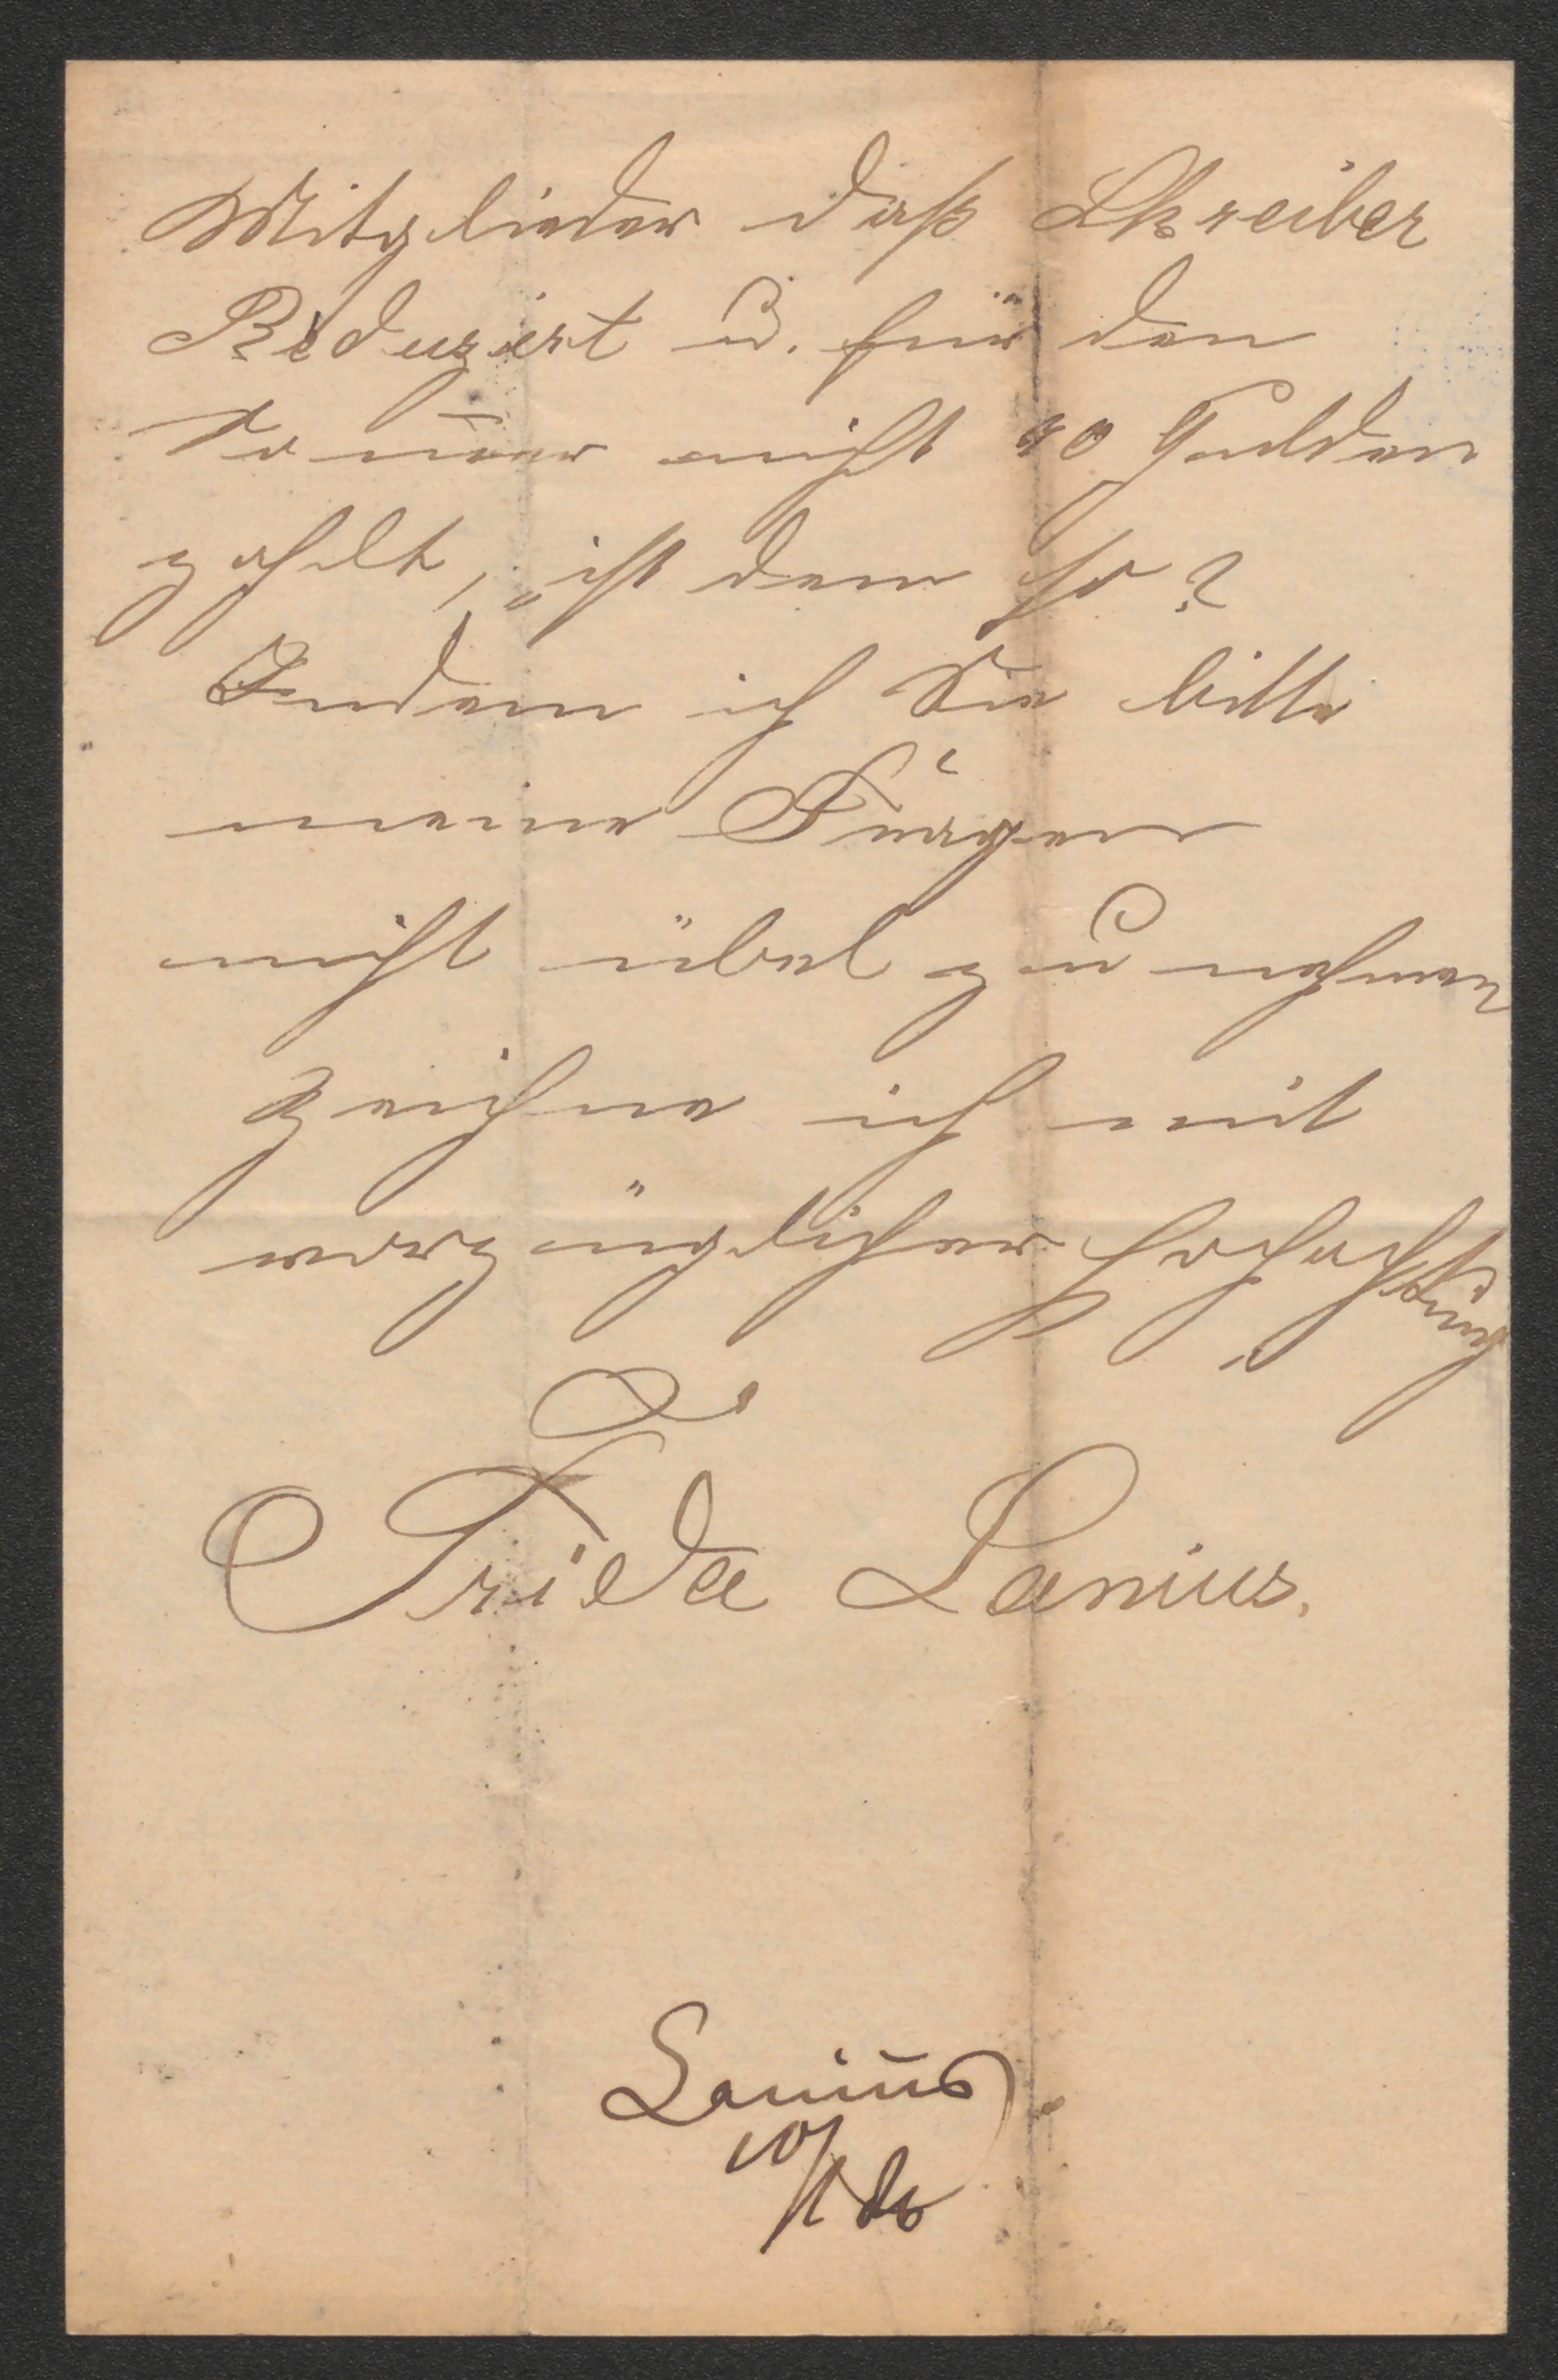 Mitglieder daß Schreiber
Reduziert u. für den
So m̅er nicht 40 Gulden
zahlt, ist dem so?
Indem ich Sie bitte
meine Fragen
nicht übel zu nehmen
zeichne ich mit
vorzüglicher Hochachtung
Frida Lanius.
Lanius
10/1 86